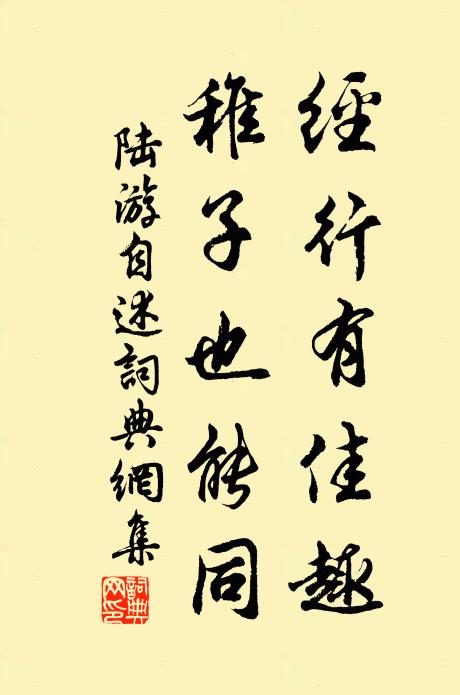 經行有佳趣
稚子也能同
陸游自述詞典網集
詞典网印